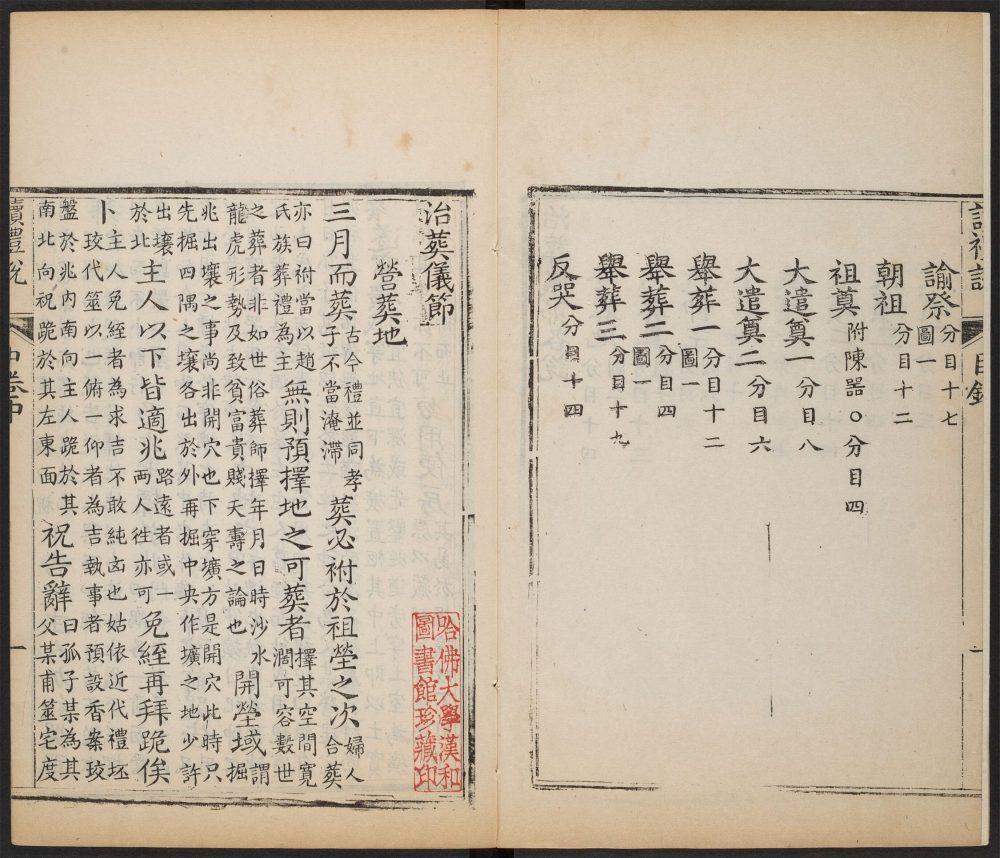 諭祭分目十七
圖一
朝祖分目十二
祖奠附陳噐〇分目四
大遣奠一分目八
大遣奠二分目六
舉葬一分目十二
圖一
舉葬二分目四
圖一
舉葬三分目十九
反哭分目十四
目錄
一
治葬儀節
營葬地
三月而葬古今禮並同孝
子不當淹滯葬必祔於祖塋之次婦人
合葬
亦曰祔當以趙
氏族葬禮為主無則預擇地之可葬者擇其空間寬
濶可容數世
之葬者非如世俗葬師擇年月日時沙水
龍虎形勢及致貧富貴賤夭壽之論也開塋域謂
掘
兆出壤之事尚非開穴也下穿壙方是開穴此時只
先掘四隅之壤各出於外再掘中央作壙之地少許
出壤
於北主人以下皆適兆路遠者或一
兩人徃亦可免絰再拜跪俟
卜主人免絰者為求吉不敢純凶也姑依近代禮坯
珓代筮以一俯一仰者為吉執事者預設香案珓
盤於兆内南向主人跪於其
南北向祝跪於其左東面祝告辭曰孤子某為其
父某甫筮宅度
讀禮悅
一
哈佛大學漢和
圖書館珍藏印